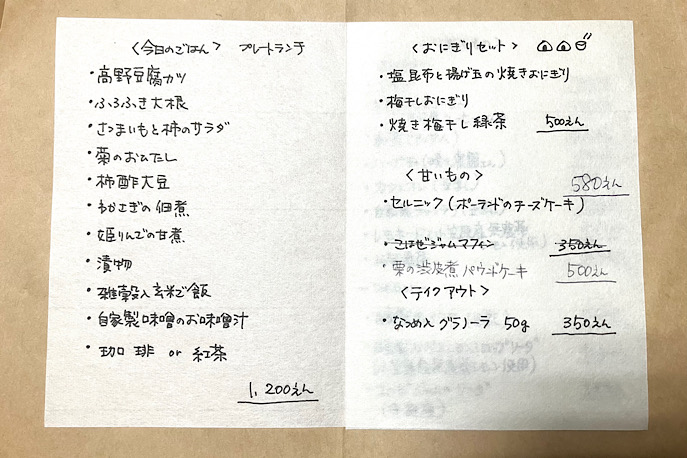 〈今日のごはん〉 プレートランチ
・高野豆腐カツ
・ふろふき大根
・さつまいもと柿のサラダ
・菊のおひたし
・柿酢大豆
・わかさぎの佃煮
・姫りんごの甘煮
・漬物
・雑穀入玄米ご飯
・自家製味噌のお味噌汁
・珈琲 or 紅茶
1,200えん
〈おにぎりセット〉
・塩昆布と揚げ玉の焼きおにぎり
・梅干しおにぎり
・焼き梅干し緑茶 500えん
〈甘いもの〉
580えん
・セルニック(ポーランドのチーズケーキ)
・こはぜジャムマフィン 350えん
・栗の渋皮煮パウンドケーキ 500えん
〈テイクアウト〉
・なつめ入グラノーラ 50g 350えん